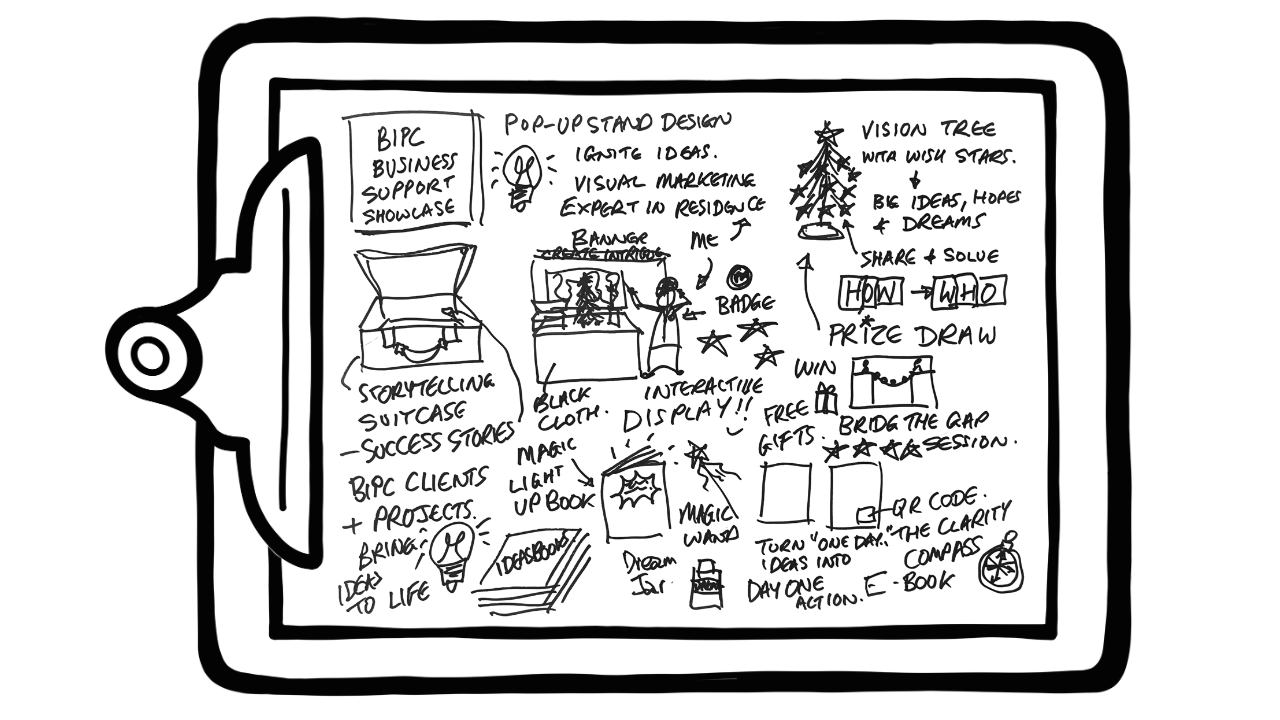 BIPC
BUSINESS
SUPPORT
SHOWCASE
POP-UP STAND DESIGN
IGNITE IDEAS.
VISUAL MARKETING
EXPERT IN RESIDENCE
ME
VISION TREE
WITH WISH STARS.
BIG IDEAS, HOPES
& DREAMS
SHARE & SOLVE
HOW → WHO
BANNER
CREATE INTRIGUE
BADGE
PRIZE DRAW
WIN
STORYTELLING
SUITCASE
- SUCCESS STORIES
BLACK
CLOTH.
INTERACTIVE
DISPLAY!!
FREE
GIFTS.
BRIDGE THE GAP
SESSION.
BIPC CLIENTS
+ PROJECTS.
BRING
IDEAS
TO LIFE
IDEASBOOKS
MAGIC
LIGHT
UP BOOK
MAGIC
WAND
Dream
Jar.
TURN "ONE DAY..."
IDEAS INTO
DAY ONE
ACTION.
QR CODE.
THE CLARITY
COMPASS
E-BOOK